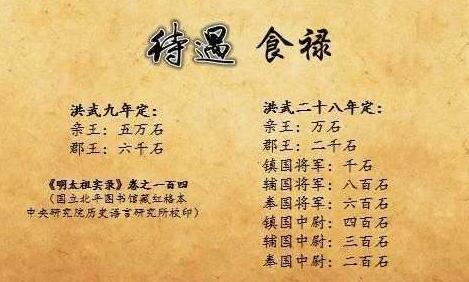 待遇 食禄
洪武九年定：
亲王：五万石
郡王：六千石
《明太祖实录》卷之一百四
（国立北平图书馆藏红格本
中央研究院历史语言研究所校印）
洪武二十八年定：
亲王：万石
郡王：二千石
镇国将军：千石
辅国将军：八百石
奉国将军：六百石
镇国中尉：四百石
辅国中尉：三百石
奉国中尉：二百石